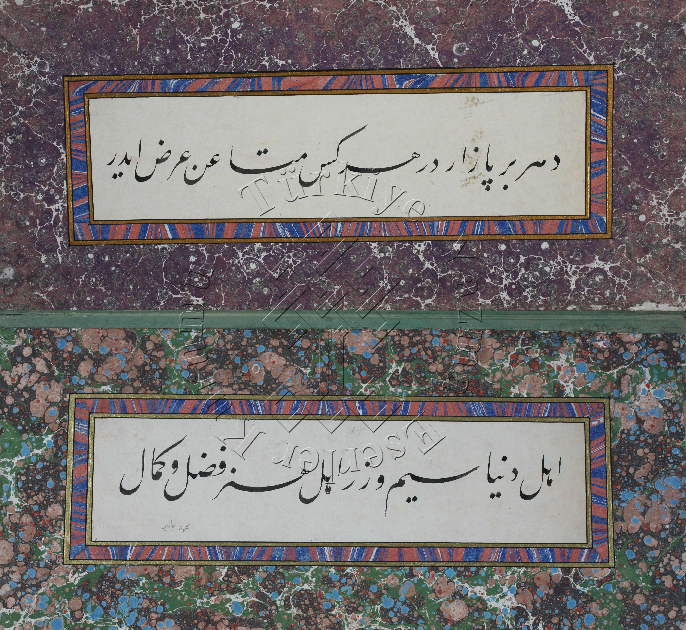 دهر بر بازار در هر كس متاعن عرض ايدر
اهل دنيا سيم و زر اهل هنر فضل و كمال
Türkiye Yazma Eserler Kurumu